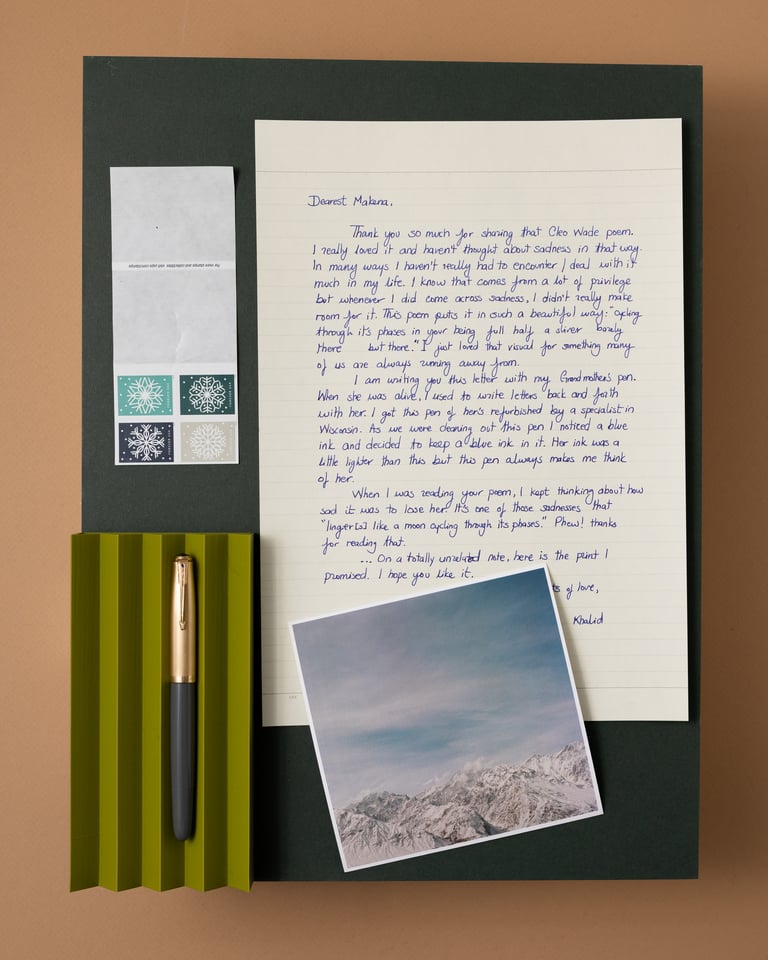 Dearest Makena,
Thank you so much for sharing that Cleo Wade poem.
I really loved it and haven't thought about sadness in that way.
In many ways I haven't really had to encounter / deal with it
much in my life. I know that comes from a lot of privilege
but whenever I did come across sadness, I didn't really make
room for it. This poem puts it in such a beautiful way: "cycling
through it's phases in your being full half a sliver barely
there but there." I just loved that visual for something many
of us are always running away from.
I am writing you this letter with my Grandmother's pen.
When she was alive, I used to write letters back and forth
with her. I got this pen of her's refurbished by a specialist in
Wisconsin. As we were cleaning out this pen I noticed a blue
ink and decided to keep a blue ink in it. Her ink was a
little lighter than this but this pen always makes me think
of her.
When I was reading your poem, I kept thinking about how
sad it was to lose her. It's one of those sadnesses that
"linger[s] like a moon cycling through its phases." Phew! thanks
for reading that.
... On a totally unrelated note, here is the print I
promised. I hope you like it.
ts of love,
Khalid
For more stamps and collectibles visit usps.com/stamps